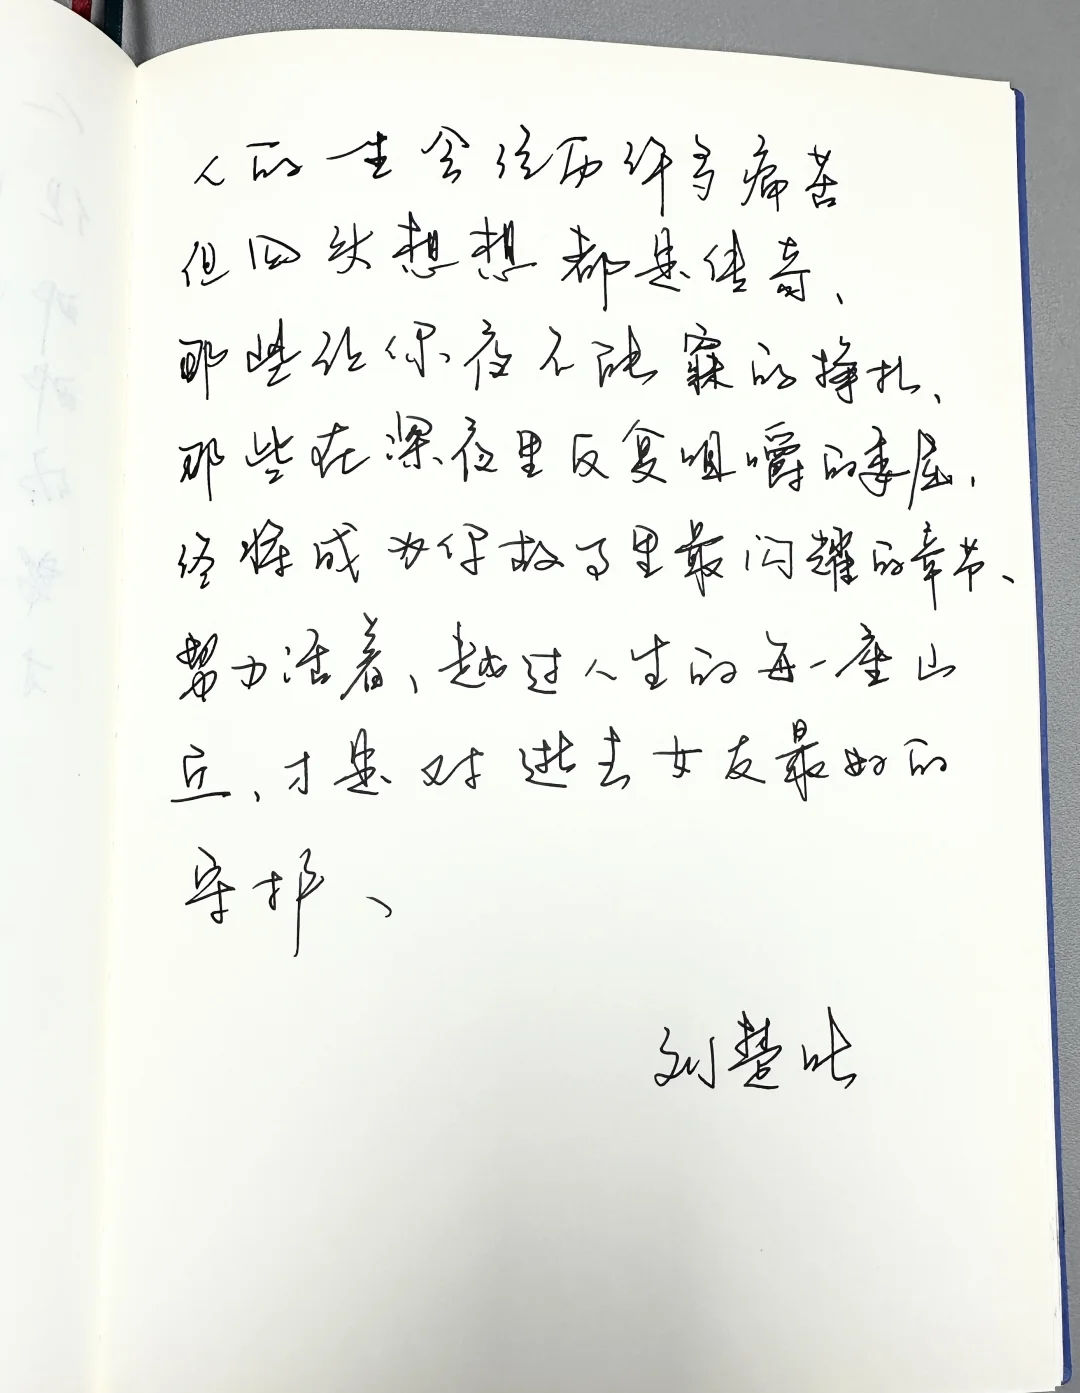 人的一生会经历许多痛苦
但回头想想都是传奇、
那些让你夜不能寐的挣扎、
那些在深夜里反复咀嚼的委屈,
终将成为你故事里最闪耀的章节、
努力活着、越过人生的每一座山
丘、才是对逝去女友最好的
守护、
刘楚